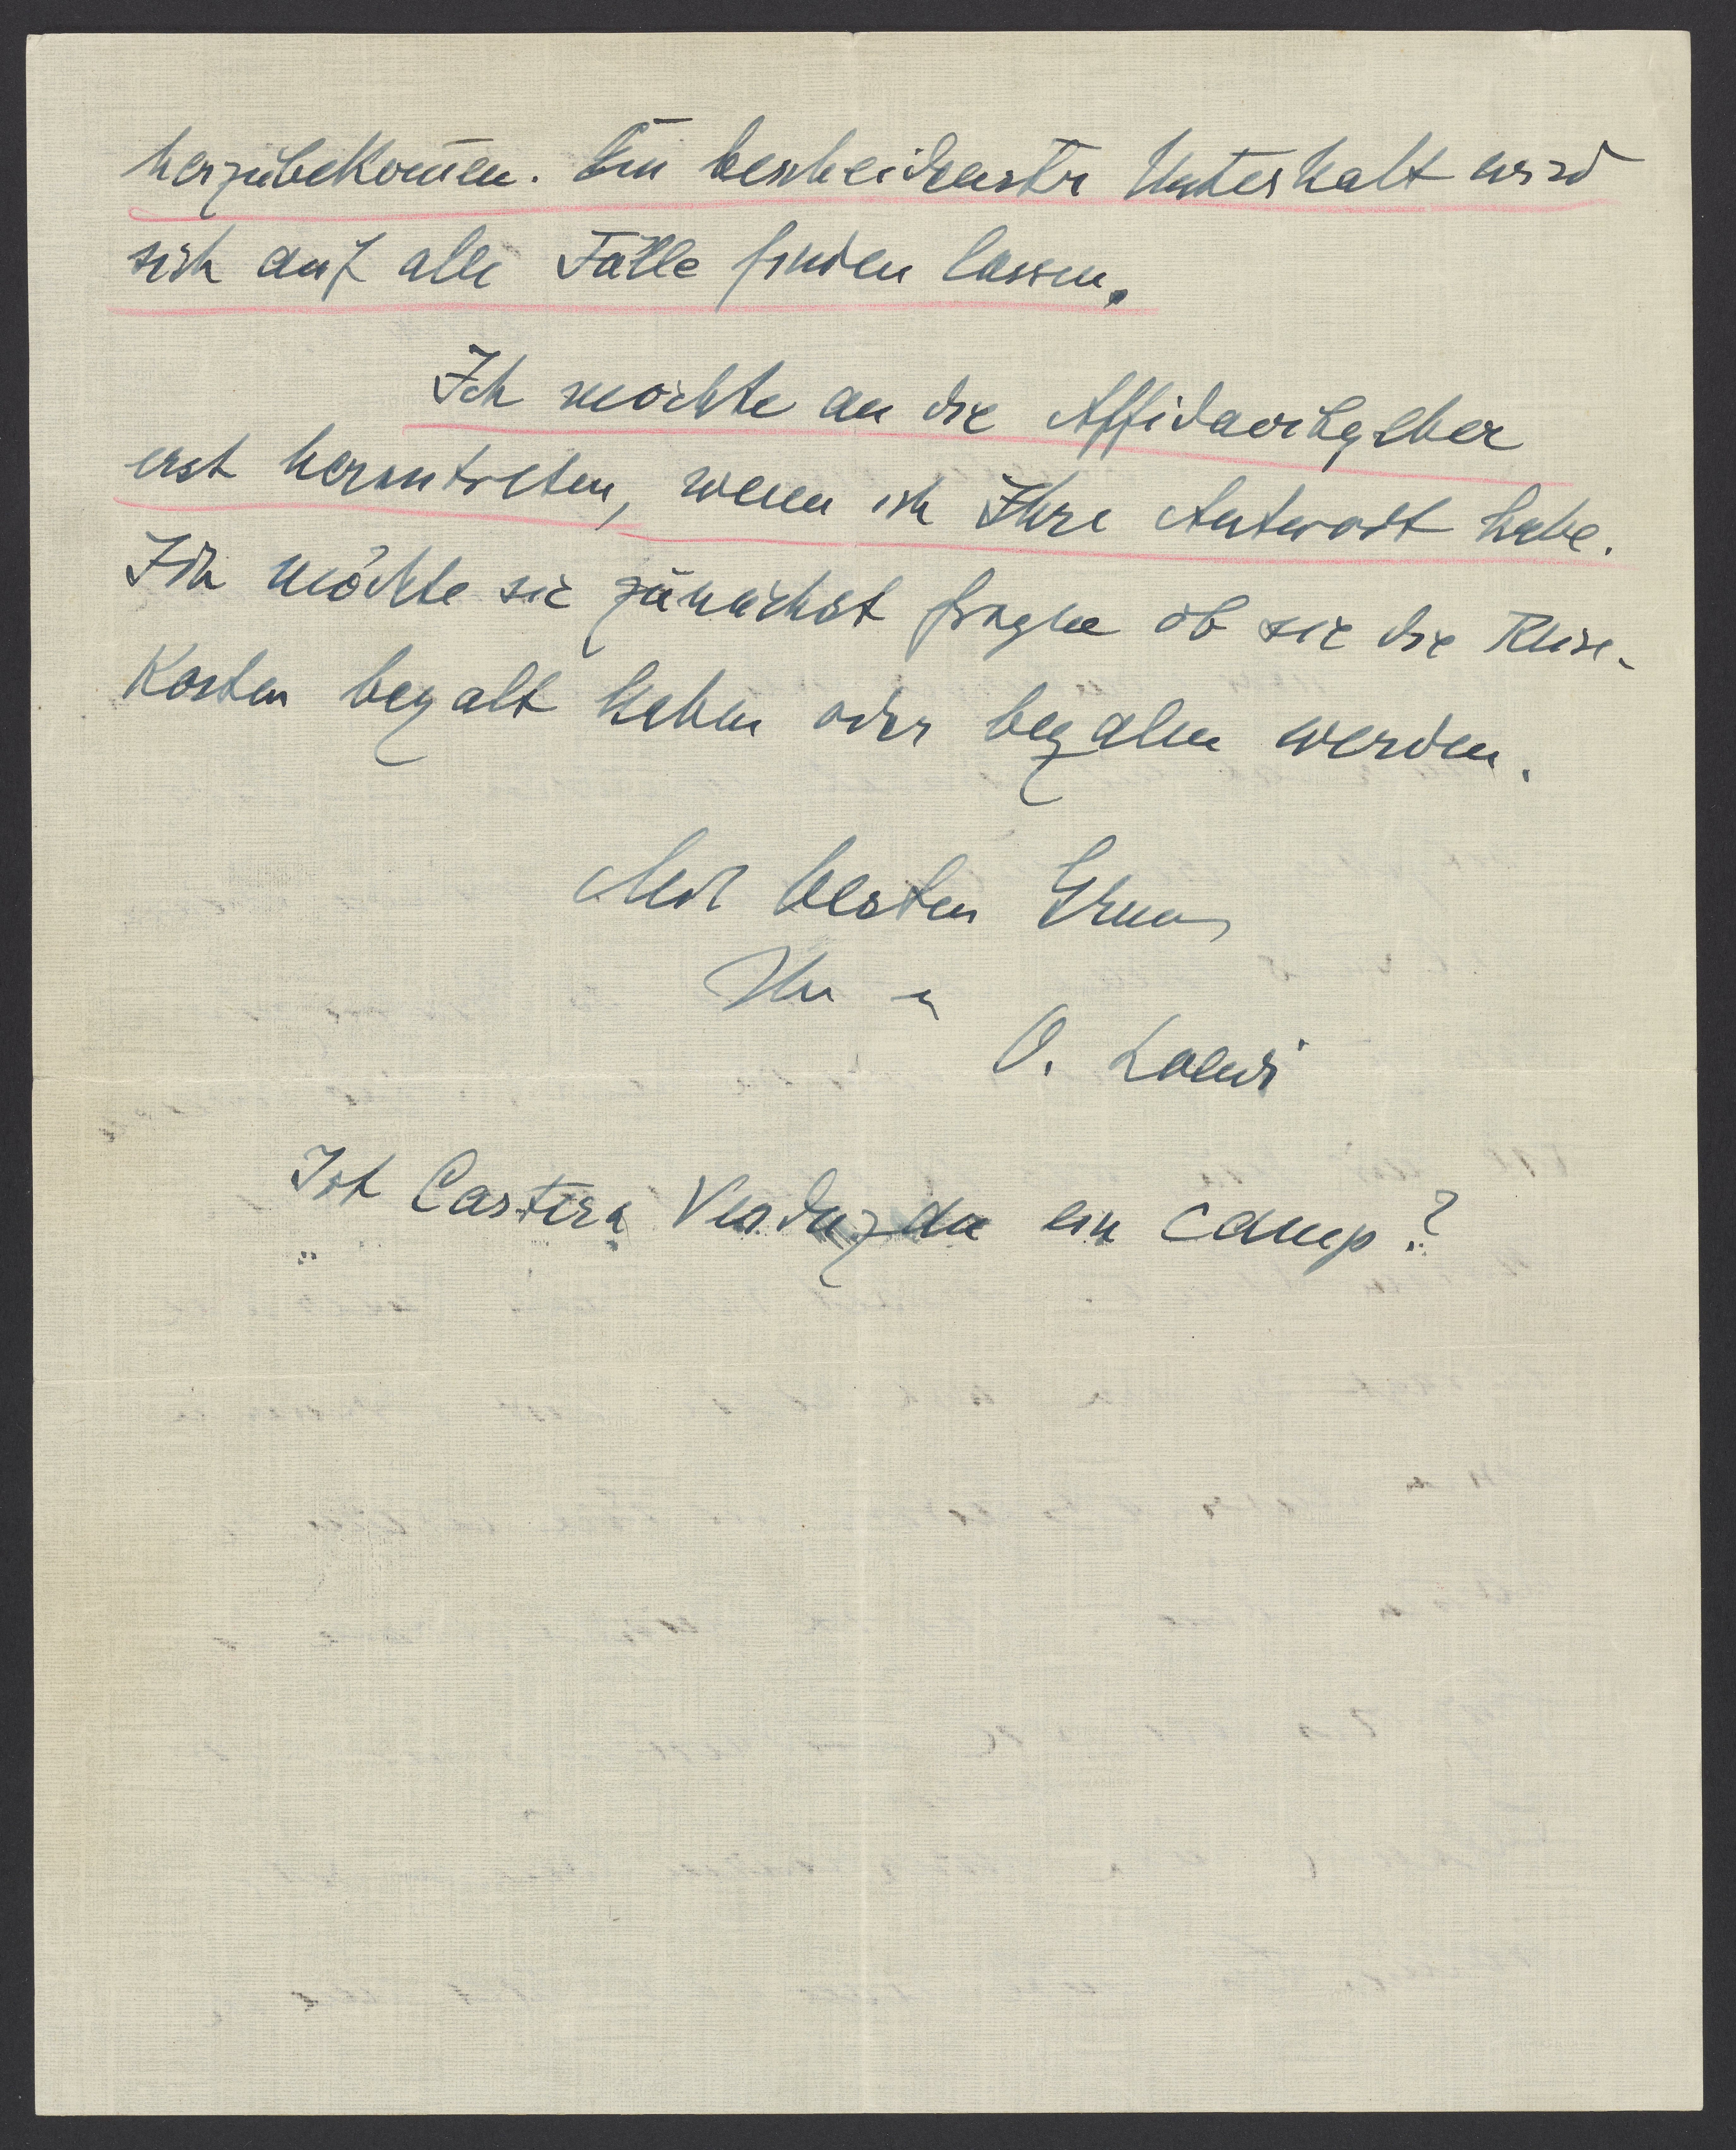 herzubekom̄en. Ein bescheidenster Unterhalt wird
sich auf alle Fälle finden lassen.
Ich möchte an die Affidavitgeber
erst herantreten, wenn ich Ihre Antwort habe.
Ich möchte sie zunächst fragen ob sie die Reise-
Kosten bezalt haben oder bezalen werden.
Mit besten Gruss
Ihr
O. Loewi
Ist Castera Verduzan ein Camp?